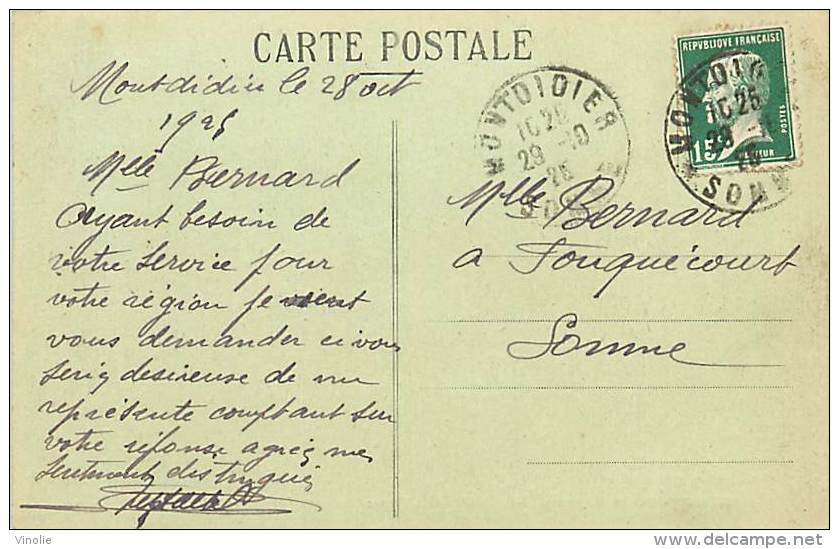 CARTE POSTALE
Montdidier le 28 Oct
1925
Mlle Bernard
Ayant besoin de
votre service pour
votre région je vient
vous demander ci vous
seriez desireuse de me
représente comptant sur
votre réponse agréez mes
sentiment distingués
REPUBLIQUE FRANÇAISE
15
POSTES
MONTDIDIER
1025
29 -10
25
SOMME
MONTDI
1025
29 -1
25
SOMM
Mlle Bernard
a Fouquécourt
Somme
Vinolie
www.delcampe.net